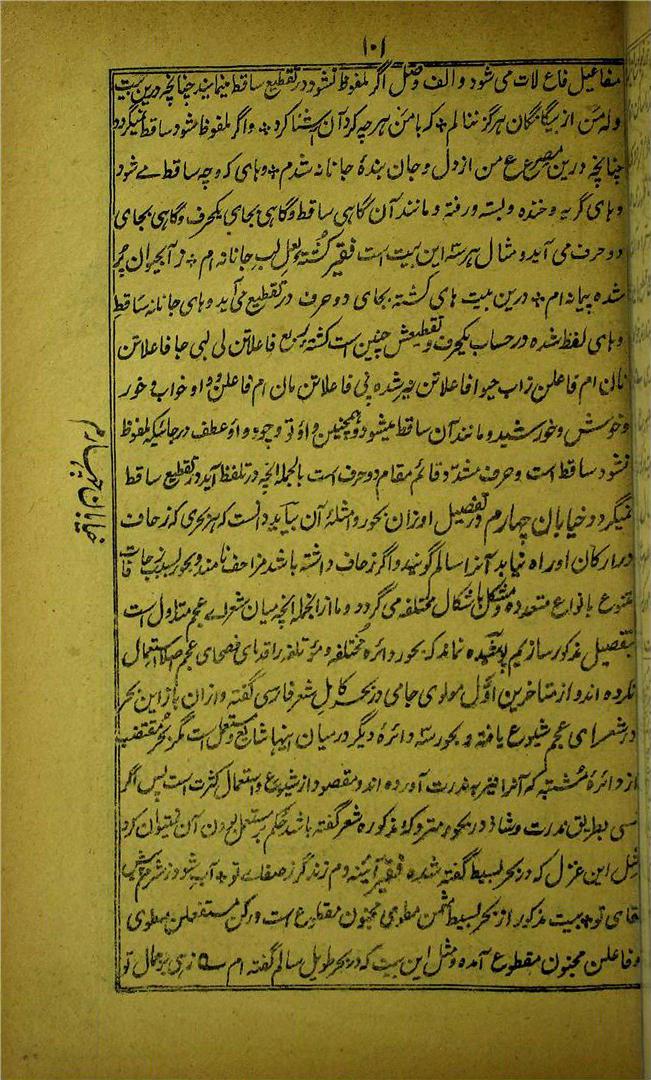 ۱۰۱
مفاعیل فاع لات می شود و الف وصل اگر ملفوظ نشود در تقطیع ساقط مینمایند چنانچه درین بیت
وله من از بیگانگان هرگز ننالم * که با من هرچه کرد آن آشنا کرد * و اگر ملفوظ میشود ساقط نمیگردد
چنانچه درین مصرع ع من از دل و جان بندهٔ جانانه شدم * و های که و چه ساقط مے شود
و های گریه و خنده و بسته و رفته و مانند آن گاهی ساقط و گاهی بجای یکحرف و گاهی بجای
دو حرف می آید و مثال هر سه این بیت است فقیر کشته لعل لب جانانه ام * ز آب حیوان پر
شده پیمانه ام * درین بیت های کشته بجای دو حرف در تقطیع می آید و های جانانه ساقط
و های لفظ شده در حساب یکحرف و تقطیعش چنین است کشته فاعلاتن لی لبی جا فاعلاتن
نان ام فاعلن زاب حیوا فاعلاتن پر شده پی فاعلاتن مان ام فاعلن و واو خواب و خور
و خوش و خورشید و مانند آن ساقط میشود و همچنین واو تو و چو و واو عطف در جائیکه ملفوظ
نشود ساقط است و حرف مشدد قائم مقام دو حرف است بالجمله آنچه در تلفظ آید در تقطیع ساقط
نمیگردد خیابان چهارم در تفصیل اوزان بحور و امثلهٔ آن بباید دانست که هر بحری که زحاف
در ارکان او راه نیابد آنرا سالم گویند و اگر زحاف داشته باشد مزاحف نامند و بحور بسبب زحافات
متنوع بانواع متعدده و مشکل باشکال مختلفه می گردد و ما از انجمله آنچه میان شعرای عجم متداول است
بتفصیل مذکور سازیم پوشیده نماند که بحور دائرهٔ مختلفه و مؤتلفه را قدمای فصحای عجم اصلا استعمال
نکرده اند و از متاخرین اول مولوی جامی در بحر کامل شعر فارسی گفته و از ان باز این بحر
در شعرای عجم شیوع یافته و بحور سه دائرهٔ دیگر در میان اینها شائع و مستعمل است مگر بحر مقتضب
از دائرهٔ مشتبه که آنرا نیز بندرت آورده اند و مقصود از شیوع و استعمال کثرت است پس اگر
کسی بطریق ندرت و شاذ در بحور متروکهٔ مذکوره شعر گفته باشد حکم بمستعمل بودن آن نمیتوان کرد
مثل این غزل که در بحر بسیط گفته شده فقیر آئینه دم زند گر ز صفای تو * آب شود ز شرم پیش
لقای تو * بیت مذکور از بحر بسیط مثمن مطوی مخبون مقطوع است و رکن مستفعلن مطوی
و فاعلن مخبون مقطوع آمده و مثل این بیت که در بحر طویل سالم گفته ام ے زهی بر جمال تو
خیابان چہارم